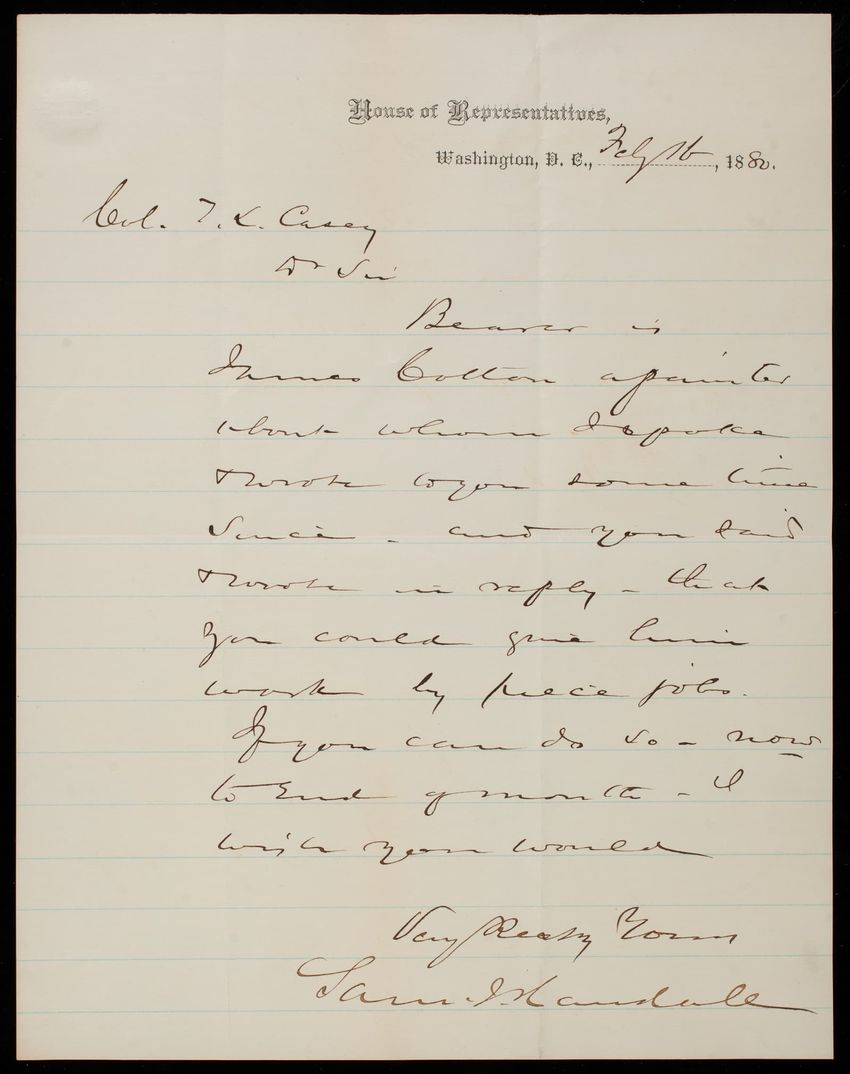 House of Representatives,
Washington, D. C., Feby 16, 1880.
Col. T. L. Casey
Dr Sir
Bearer is
James Cotton a painter
about whom I spoke
& wrote to you some time
since - and you said
& wrote in reply - that
you could give him
work by piece jobs.
If you can do so - now
to end of month - I
wish you would
Very Respy Yours
Sam. J. Randall